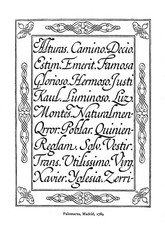 Alturas. Camino. Decio.
Extin. Emerit. Famosa
Glorioso. Hermoso. Justi
Kaul. Luminoso. Luz.
Montes. Naturalmen-
Orror. Poblar. Quinien-
Reglam. Solv. Vestir.
Trans. Utilissimo. Virg.
Xavier. Yglesia. Zorri-
Palomares, Madrid, 1789